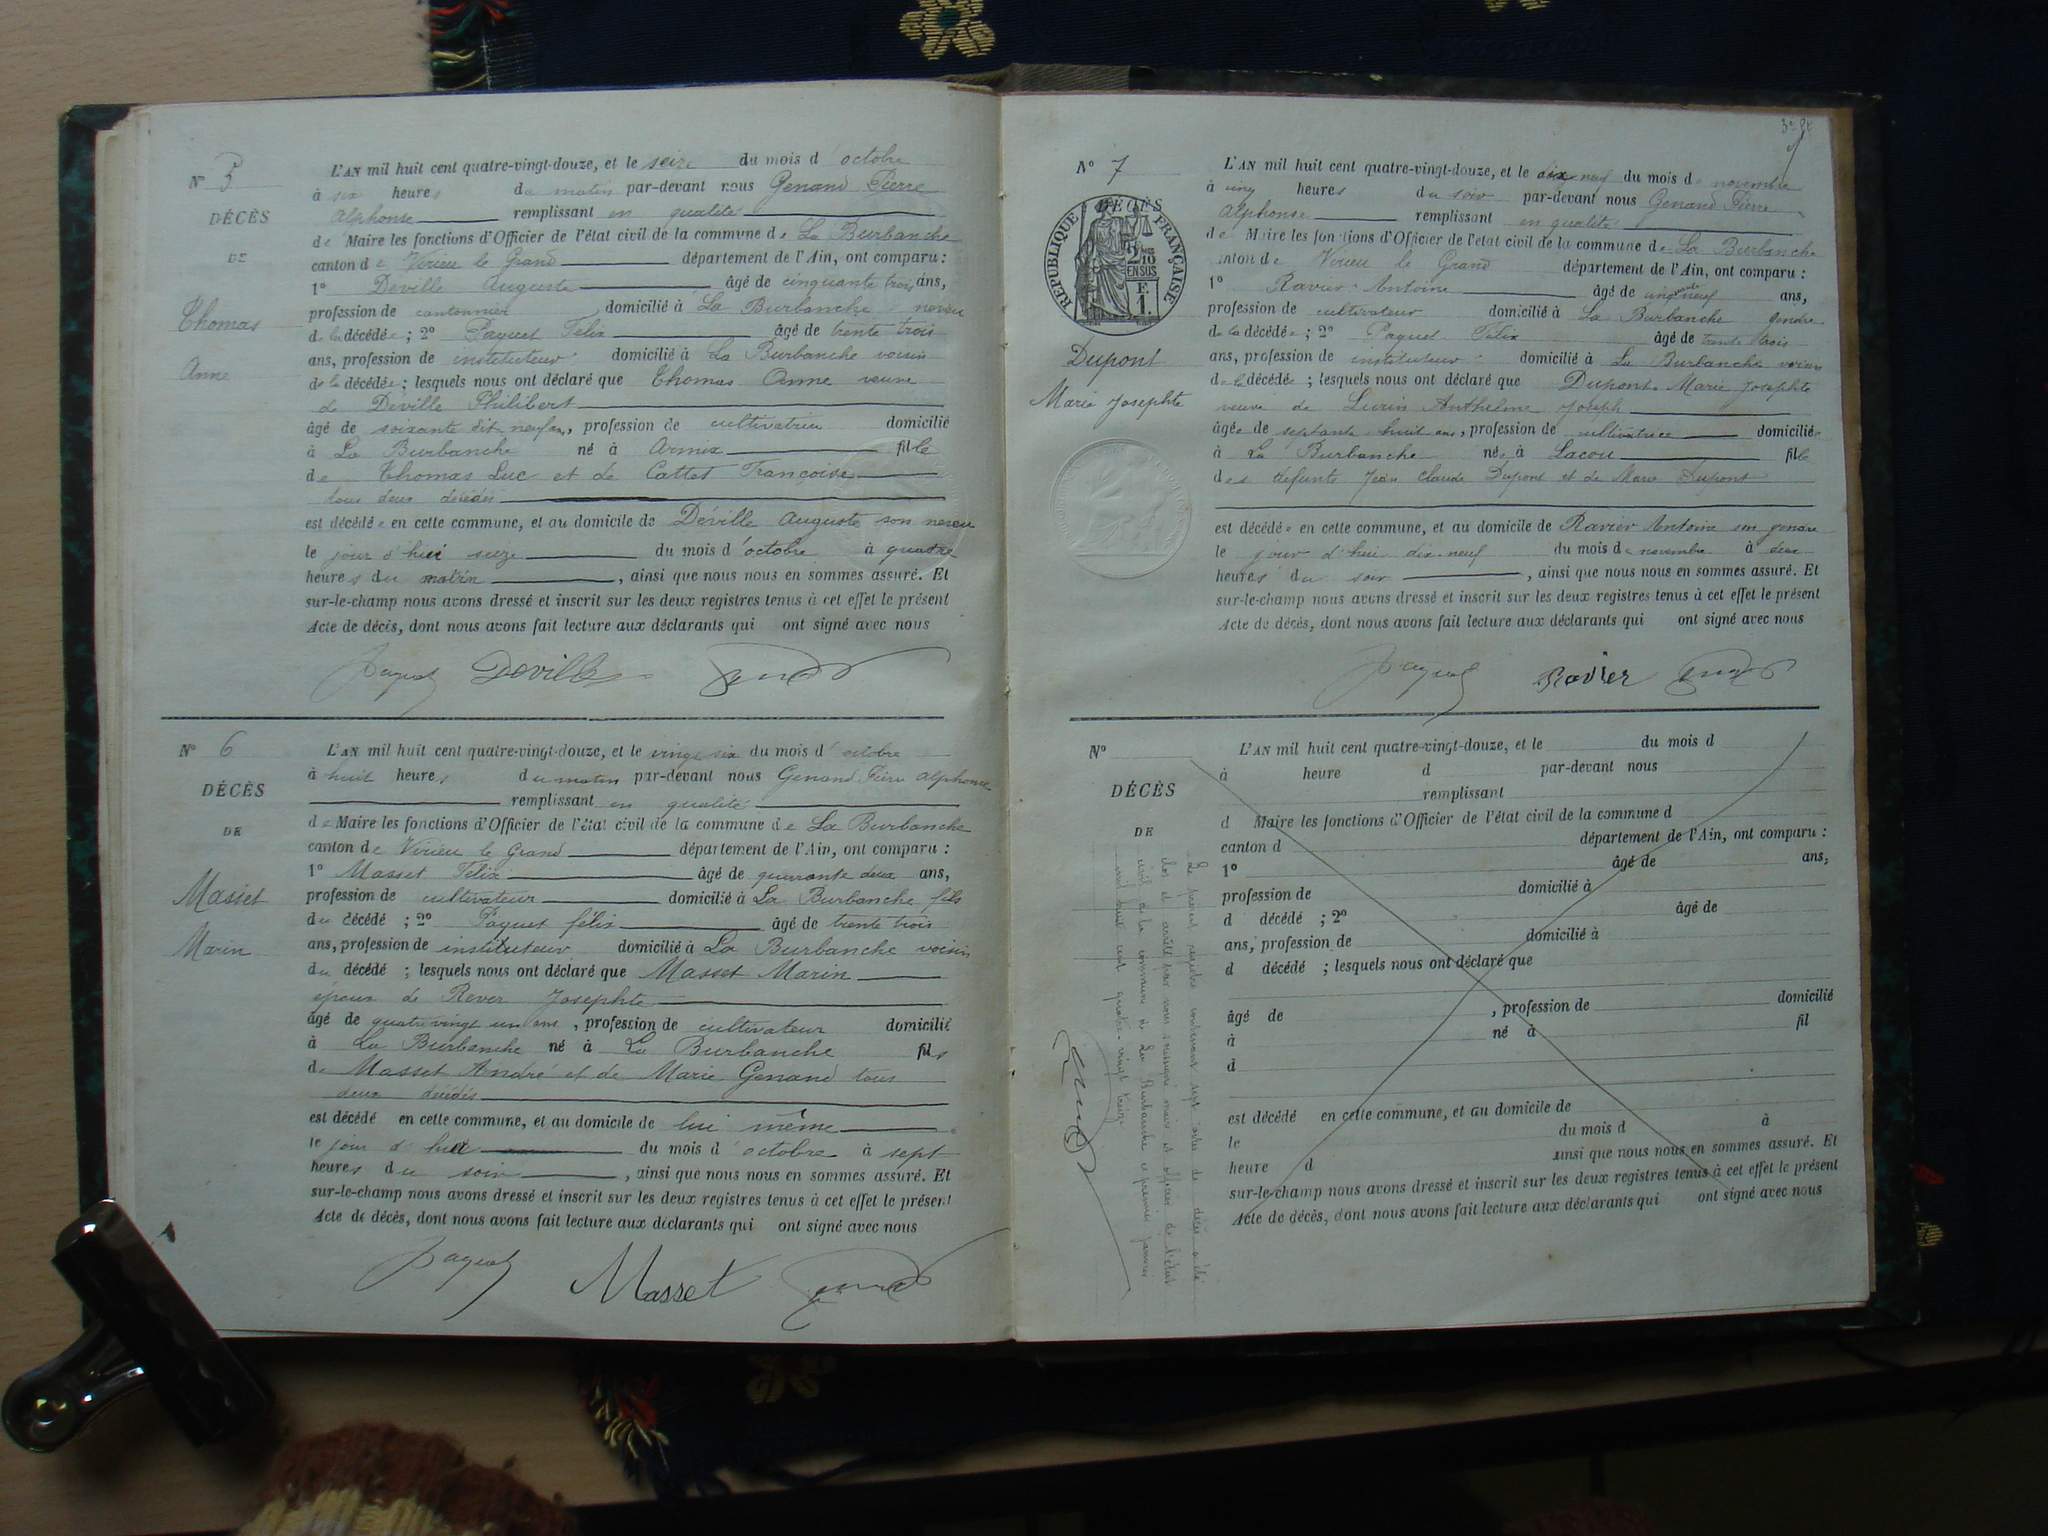 N° 5
DÉCÈS
DE
Thomas
Anne
L'AN mil huit cent quatre-vingt-douze, et le seize du mois d'octobre
à six heures du matin par-devant nous Genand Pierre
Alphonse remplissant en qualité
de Maire les fonctions d'Officier de l'état civil de la commune de La Burbanche
canton de Virieu le Grand département de l'Ain, ont comparu :
1° Deville Auguste âgé de cinquante trois ans,
profession de cantonnier domicilié à La Burbanche neveu
de la décédée ; 2° Paquet Félix âgé de trente trois
ans, profession de instituteur domicilié à La Burbanche voisin
de la décédée ; lesquels nous ont déclaré que Thomas Anne veuve
de Déville Philibert
âgé de soixante dix neuf ans, profession de cultivatrice domicilié
à La Burbanche né à Armix fille
de Thomas Luc et de Cattet Françoise
tous deux décédés
est décédée en cette commune, et au domicile de Déville Auguste son neveu
le jour d'hui seize du mois d'octobre à quatre
heures du matin , ainsi que nous nous en sommes assuré. Et
sur-le-champ nous avons dressé et inscrit sur les deux registres tenus à cet effet le présent
Acte de décès, dont nous avons fait lecture aux déclarants qui ont signé avec nous
Paquet Deville Genand
N° 6
DÉCÈS
DE
Masset
Marin
L'AN mil huit cent quatre-vingt-douze, et le vingt six du mois d'octobre
à huit heures du matin par-devant nous Genand Pierre Alphonse
remplissant en qualité
de Maire les fonctions d'Officier de l'état civil de la commune de La Burbanche
canton de Virieu le Grand département de l'Ain, ont comparu :
1° Masset Félix âgé de quarante deux ans,
profession de cultivateur domicilié à La Burbanche fils
du décédé ; 2° Paquet félix âgé de trente trois
ans, profession de instituteur domicilié à La Burbanche voisin
du décédé ; lesquels nous ont déclaré que Masset Marin
époux de Rever Josephte
âgé de quatre vingt un ans , profession de cultivateur domicilié
à La Burbanche né à La Burbanche fils
de Masset André et de Marie Genand tous
deux décédés
est décédé en cette commune, et au domicile de lui même
le jour d'hui du mois d'octobre à sept
heures du soir , ainsi que nous nous en sommes assuré. Et
sur-le-champ nous avons dressé et inscrit sur les deux registres tenus à cet effet le présent
Acte de décès, dont nous avons fait lecture aux déclarants qui ont signé avec nous
Paquet Masset Genand
N° 7
DÉCÈS
RÉPUBLIQUE FRANÇAISE
2/10 EN SUS
F. 1.
Dupont
Marie Josephte
L'AN mil huit cent quatre-vingt-douze, et le dix neuf du mois de novembre
à cinq heures du soir par-devant nous Genand Pierre
Alphonse remplissant en qualité
de Maire les fonctions d'Officier de l'état civil de la commune de La Burbanche
canton de Virieu le Grand département de l'Ain, ont comparu :
1° Ravier Antoine âgé de cinquante neuf ans,
profession de cultivateur domicilié à La Burbanche gendre
de la décédée ; 2° Paquet Félix âgé de trente trois
ans, profession de instituteur domicilié à La Burbanche voisin
de la décédée ; lesquels nous ont déclaré que Dupont Marie Josephte
veuve de Lurin Anthelme Joseph
âgée de septante huit ans, profession de cultivatrice domiciliée
à La Burbanche née à Lacou fille
des défunts Jean Claude Dupont et de Marie Dupont
est décédée en cette commune, et au domicile de Ravier Antoine son gendre
le jour d'hui dix-neuf du mois de novembre à deux
heures du soir , ainsi que nous nous en sommes assuré. Et
sur-le-champ nous avons dressé et inscrit sur les deux registres tenus à cet effet le présent
Acte de décès, dont nous avons fait lecture aux déclarants qui ont signé avec nous
Paquet Ravier Genand
N°
DÉCÈS
DE
L'AN mil huit cent quatre-vingt-douze, et le du mois d
à heure d par-devant nous
remplissant
d Maire les fonctions d'Officier de l'état civil de la commune d
canton d département de l'Ain, ont comparu :
1° âgé de ans,
profession de domicilié à
d décédé ; 2° âgé de
ans, profession de domicilié à
d décédé ; lesquels nous ont déclaré que
âgé de , profession de domicilié
à né à fil
d
est décédé en cette commune, et au domicile de
le du mois d à
heure d ainsi que nous nous en sommes assuré. Et
sur-le-champ nous avons dressé et inscrit sur les deux registres tenus à cet effet le présent
Acte de décès, dont nous avons fait lecture aux déclarants qui ont signé avec nous
Le présent registre contenant sept actes de décès a été
clos et arrêté par nous soussigné maire et officier de l'état
civil de la commune de La Burbanche ce premier janvier
mil huit cent quatre-vingt treize
Genand